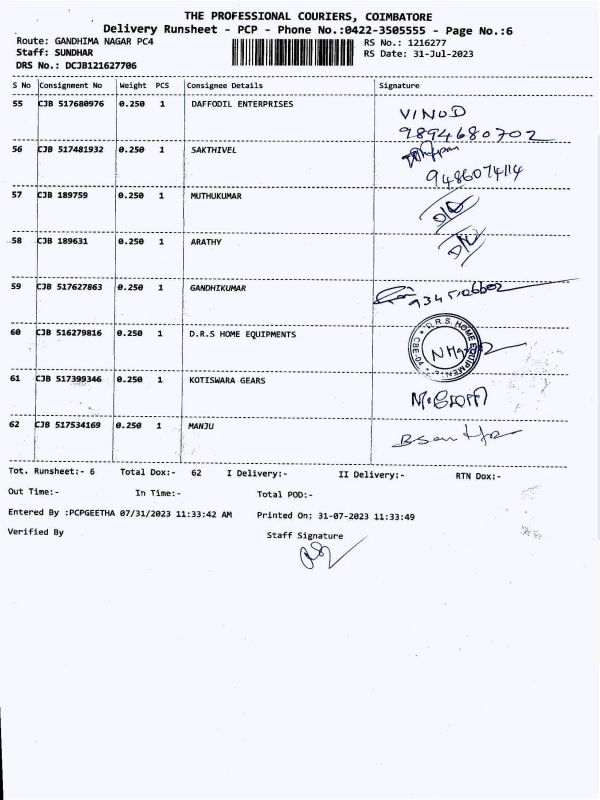 THE PROFESSIONAL COURIERS, COIMBATORE
Delivery Runsheet - PCP - Phone No.:0422-3505555 - Page No.:6
Route: GANDHIMA NAGAR PC4
RS No.: 1216277
Staff: SUNDHAR
RS Date: 31-Jul-2023
DRS No.: DCJB121627706
S No Consignment No Weight PCS Consignee Details Signature
55 CJB 517680976 0.250 1 DAFFODIL ENTERPRISES VINOD
9894680702
56 CJB 517481932 0.250 1 SAKTHIVEL
9486074114
57 CJB 189759 0.250 1 MUTHUKUMAR
58 CJB 189631 0.250 1 ARATHY
59 CJB 517627863 0.250 1 GANDHIKUMAR
60 CJB 516279816 0.250 1 D.R.S HOME EQUIPMENTS
D.R.S. HOME EQUIPMENTS
61 CJB 517399346 0.250 1 KOTISWARA GEARS
62 CJB 517534169 0.250 1 MANJU
Tot. Runsheet:- 6 Total Dox:- 62 I Delivery:- II Delivery:- RTN Dox:-
Out Time:- In Time:- Total POD:-
Entered By :PCPGEETHA 07/31/2023 11:33:42 AM Printed On: 31-07-2023 11:33:49
Verified By Staff Signature